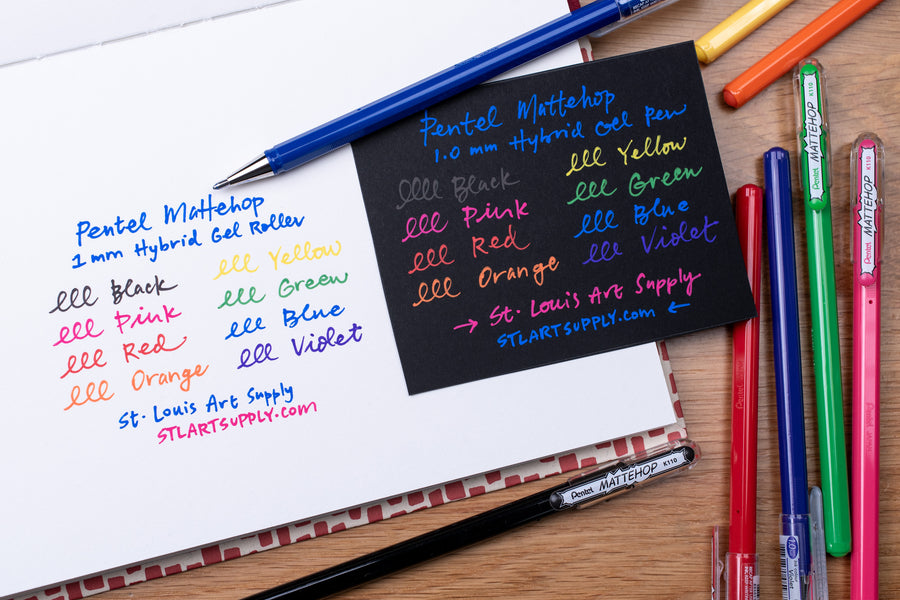 Pentel Mattehop
1 mm Hybrid Gel Roller
lll Black
lll Pink
lll Red
lll Orange
lll Yellow
lll Green
lll Blue
lll Violet
St. Louis Art Supply
STLARTSUPPLY.com
Pentel Mattehop
1.0 mm Hybrid Gel Pen
llll Black
lll Pink
lll Red
lll Orange
lll Yellow
lll Green
lll Blue
lll Violet
→ St. Louis Art Supply
STLARTSUPPLY.com ←
Pentel MATTEHOP K110
Pentel MATTEHOP K110
Pentel MATTEHOP K110
1.0
Violet